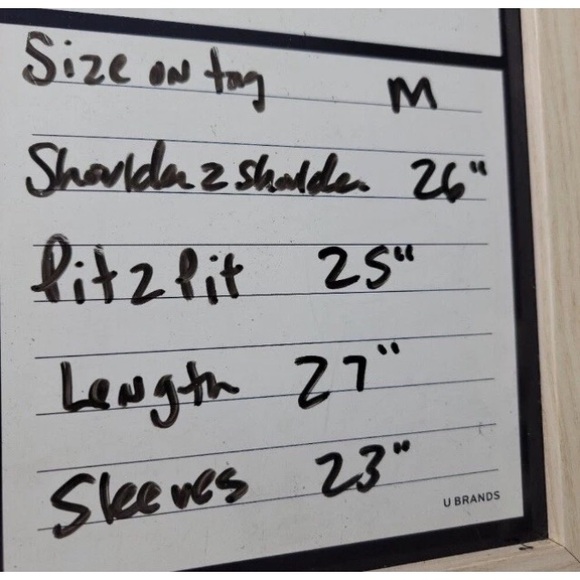 Size on tag M
Shoulder 2 shoulder 26"
Pit 2 Pit 25"
Length 27"
Sleeves 23"
U BRANDS